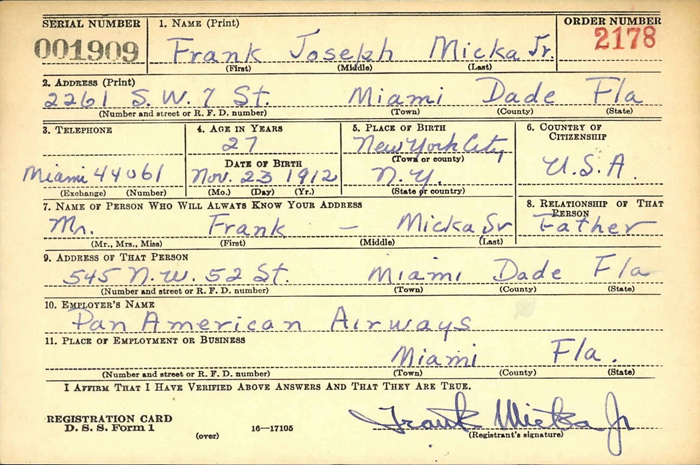 SERIAL NUMBER 1. NAME (Print) ORDER NUMBER
001909 Frank Joseph Micka Jr. 2178
(First) (Middle) (Last)
2. ADDRESS (Print)
2261 S. W. 7 St. Miami Dade Fla
(Number and street or R. F. D. number) (Town) (County) (State)
3. TELEPHONE 4. AGE IN YEARS 5. PLACE OF BIRTH 6. COUNTRY OF CITIZENSHIP
27 New York City
DATE OF BIRTH (Town or county)
Miami 44061 Nov. 23 1912 N.Y. U.S.A.
(Exchange) (Number) (Mo.) (Day) (Yr.) (State or country)
7. NAME OF PERSON WHO WILL ALWAYS KNOW YOUR ADDRESS 8. RELATIONSHIP OF THAT PERSON
Mr. Frank — Micka Sr Father
(Mr., Mrs., Miss) (First) (Middle) (Last)
9. ADDRESS OF THAT PERSON
545 N.W. 52 St. Miami Dade Fla
(Number and street or R. F. D. number) (Town) (County) (State)
10. EMPLOYER'S NAME
Pan American Airways
11. PLACE OF EMPLOYMENT OR BUSINESS
Miami Fla.
(Number and street or R. F. D. number) (Town) (County) (State)
I AFFIRM THAT I HAVE VERIFIED ABOVE ANSWERS AND THAT THEY ARE TRUE.
REGISTRATION CARD
D. S. S. Form 1 16—17105 Frank Micka Jr
(over) (Registrant's signature)